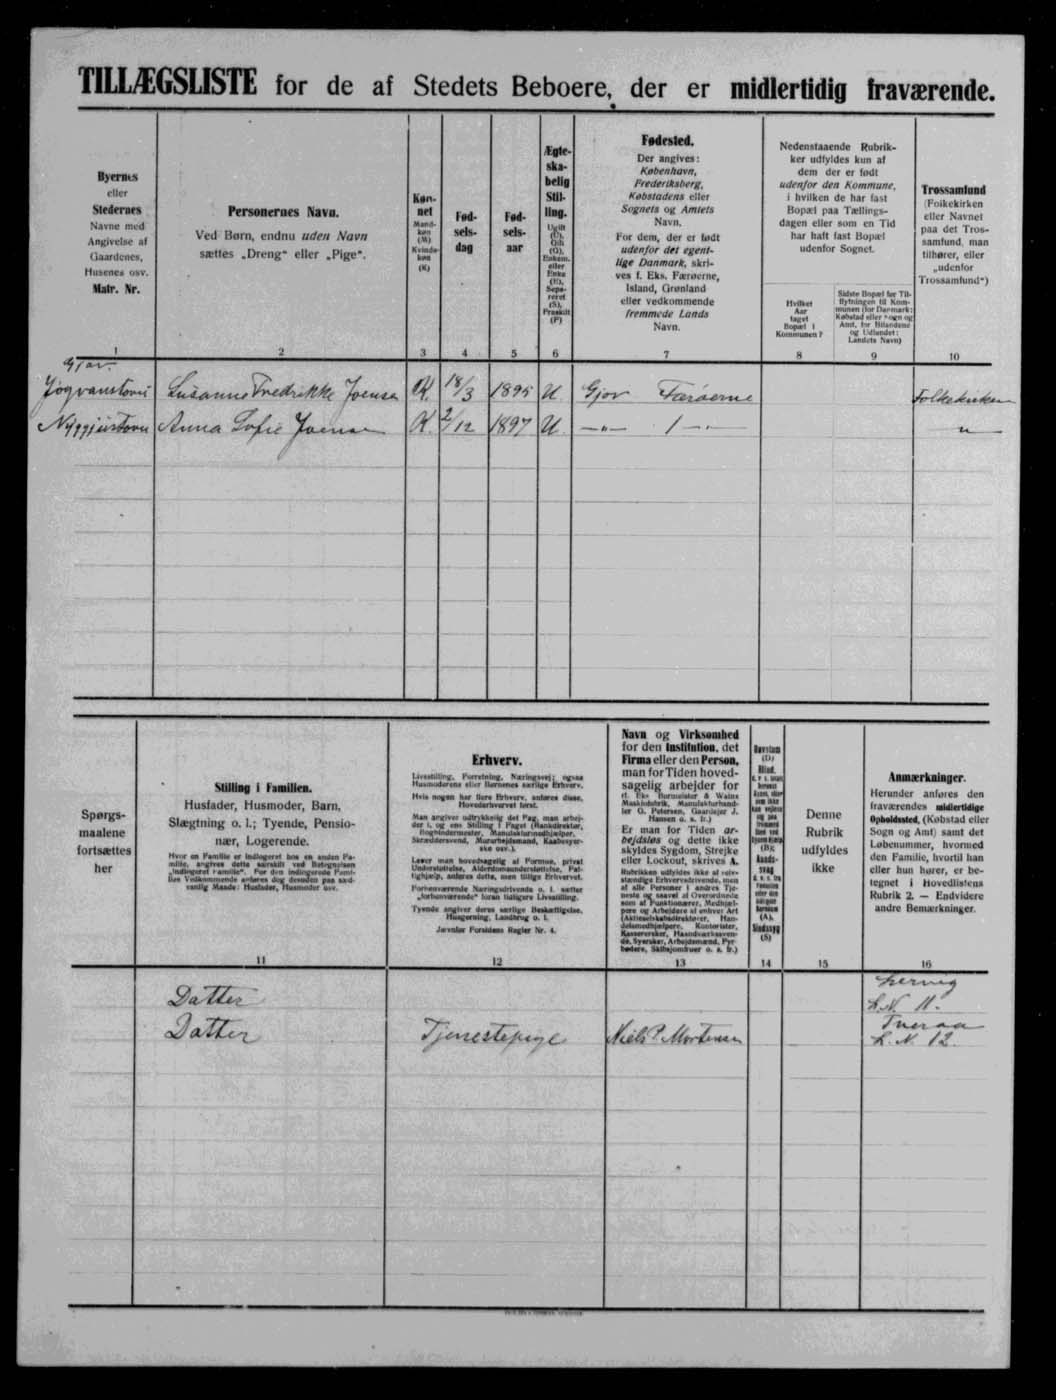 TILLÆGSLISTE for de af Stedets Beboere, der er midlertidig fraværende.
Byernes
eller
Stedernes
Navne med
Angivelse af
Gaardenes,
Husenes osv.
Matr. Nr.
1
Personernes Navn.
Ved Børn, endnu uden Navn
sættes „Dreng“ eller „Pige“.
2
Køn-
net
Mand-
køn
(M)
Kvinde-
køn
(K)
3
Fød-
sels-
dag
4
Fød-
sels-
aar
5
Ægte-
ska-
belig
Stil-
ling.
Ugift
(U),
Gift
(G),
Enkem.
eller
Enke
(E),
Sepa-
reret
(S),
Fraskilt
(F)
6
Fødested.
Der angives:
København,
Frederiksberg,
Købstadens eller
Sognets og Amtets
Navn.
For dem, der er født
udenfor det egent-
lige Danmark, skri-
ves f. Eks. Færøerne,
Island, Grønland
eller vedkommende
fremmede Lands
Navn.
7
Nedenstaaende Rubrik-
ker udfyldes kun af
dem der er født
udenfor den Kommune,
i hvilken de har fast
Bopæl paa Tællings-
dagen eller som en Tid
har haft fast Bopæl
udenfor Sognet.
Hvilket
Aar
taget
Bopæl i
Kommunen?
8
Sidste Bopæl før Til-
flytningen til Kom-
munen (for Danmark:
Købstad eller Sogn og
Amt, for Bilandene
og Udlandet:
Landets Navn)
9
Trossamfund
(Folkekirken
eller Navnet
paa det Tros-
samfund, man
tilhører, eller
„udenfor
Trossamfund“)
10
Gjov.
Jógvanstovu Susanne Fredrikke Joensen K. 18/3 1895 U. Gjov Færøerne Folkekirken
Nýggjustovu Anna Sofie Joensen K. 2/12 1897 U. —„— / —„— „
Spørgs-
maalene
fortsættes
her
Stilling i Familien.
Husfader, Husmoder, Barn,
Slægtning o. l.; Tyende, Pensio-
nær, Logerende.
Hvor en Familie er indlogeret hos en anden Fa-
milie, angives dette særskilt ved Betegnelsen
„indlogeret Familie“. For den indlogerede Fami-
lies Vedkommende anføres dog desuden paa sæd-
vanlig Maade: Husfader, Husmoder osv.
11
Erhverv.
Livsstilling, Forretning, Næringsvej; ogsaa
Husmoderens eller Børnenes særlige Erhverv.
Hvis nogen har flere Erhverv, anføres disse,
Hovederhvervet først.
Man angiver udtrykkelig det Fag, man arbej-
der i, og ens Stilling i Faget (Bankdirektør,
Bogbindermester, Manufakturmedhjælper,
Skræddersvend, Murarbejdsmand, Kaabesyer-
ske osv.).
Lever man hovedsagelig af Formue, privat
Understøttelse, Alderdomsunderstøttelse, Fat-
tighjælp, anføres dette, men tillige Erhvervet.
Forhenværende Næringsdrivende o. l. sætter
„forhenværende“ foran tidligere Livsstilling.
Tyende angiver deres særlige Beskæftigelse,
Husgerning, Landbrug o. l.
Jævnfør Forsidens Regler Nr. 4.
12
Navn og Virksomhed
for den Institution, det
Firma eller den Person,
man for Tiden hoved-
sagelig arbejder for
(f. Eks Burmeister & Wains
Maskinfabrik, Manufakturhand-
ler G. Petersen, Gaardejer J.
Hansen o. s. fr.)
Er man for Tiden ar-
bejdsløs og dette ikke
skyldes Sygdom, Strejke
eller Lockout, skrives A.
Rubrikken udfyldes ikke af selv-
stændige Erhvervsdrivende, men
af alle Personer i andres Tje-
neste og saavel af Overordnede
som af Funktionærer, Medhjæl-
pere og Arbejdere af enhver Art
(Aktieselskabsdirektører, Han-
delsmedhjælpere, Kontorister,
Kassererskér, Haandværkssven-
de, Syersker, Arbejdsmænd, Fyr-
bødere, Skibsjomfruer o. s. fr.)
13
Døvstum
(D)
Blind,
(B);
Aands-
svag
(A),
Sindssyg
(S)
14
Denne
Rubrik
udfyldes
ikke
15
Anmærkninger.
Herunder anføres den
fraværendes midlertidige
Opholdssted, (Købstad eller
Sogn og Amt) samt det
Løbenummer, hvormed
den Familie, hvortil han
eller hun hører, er be-
tegnet i Hovedlistens
Rubrik 2. — Endvidere
andre Bemærkninger.
16
Datter Lervig
L.N. 11.
Datter Tjenestepige Niels P. Mortensen Tveraa
L.N. 12.